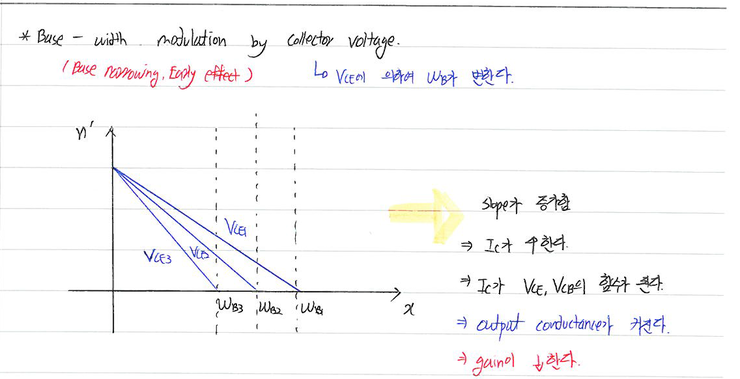 * Base - width modulation by collector voltage.
(Base narrowing, Early effect)
↳ VCE에 의하여 WB가 변한다.
n'
VCE1
VCE2
VCE3
WB3 WB2 WB1
x
slope가 증가함
⇒ Ic가 ↑한다.
⇒ Ic가 VCE, VCB의 함수가 된다.
⇒ output conductance가 커진다.
⇒ gain이 ↓한다.